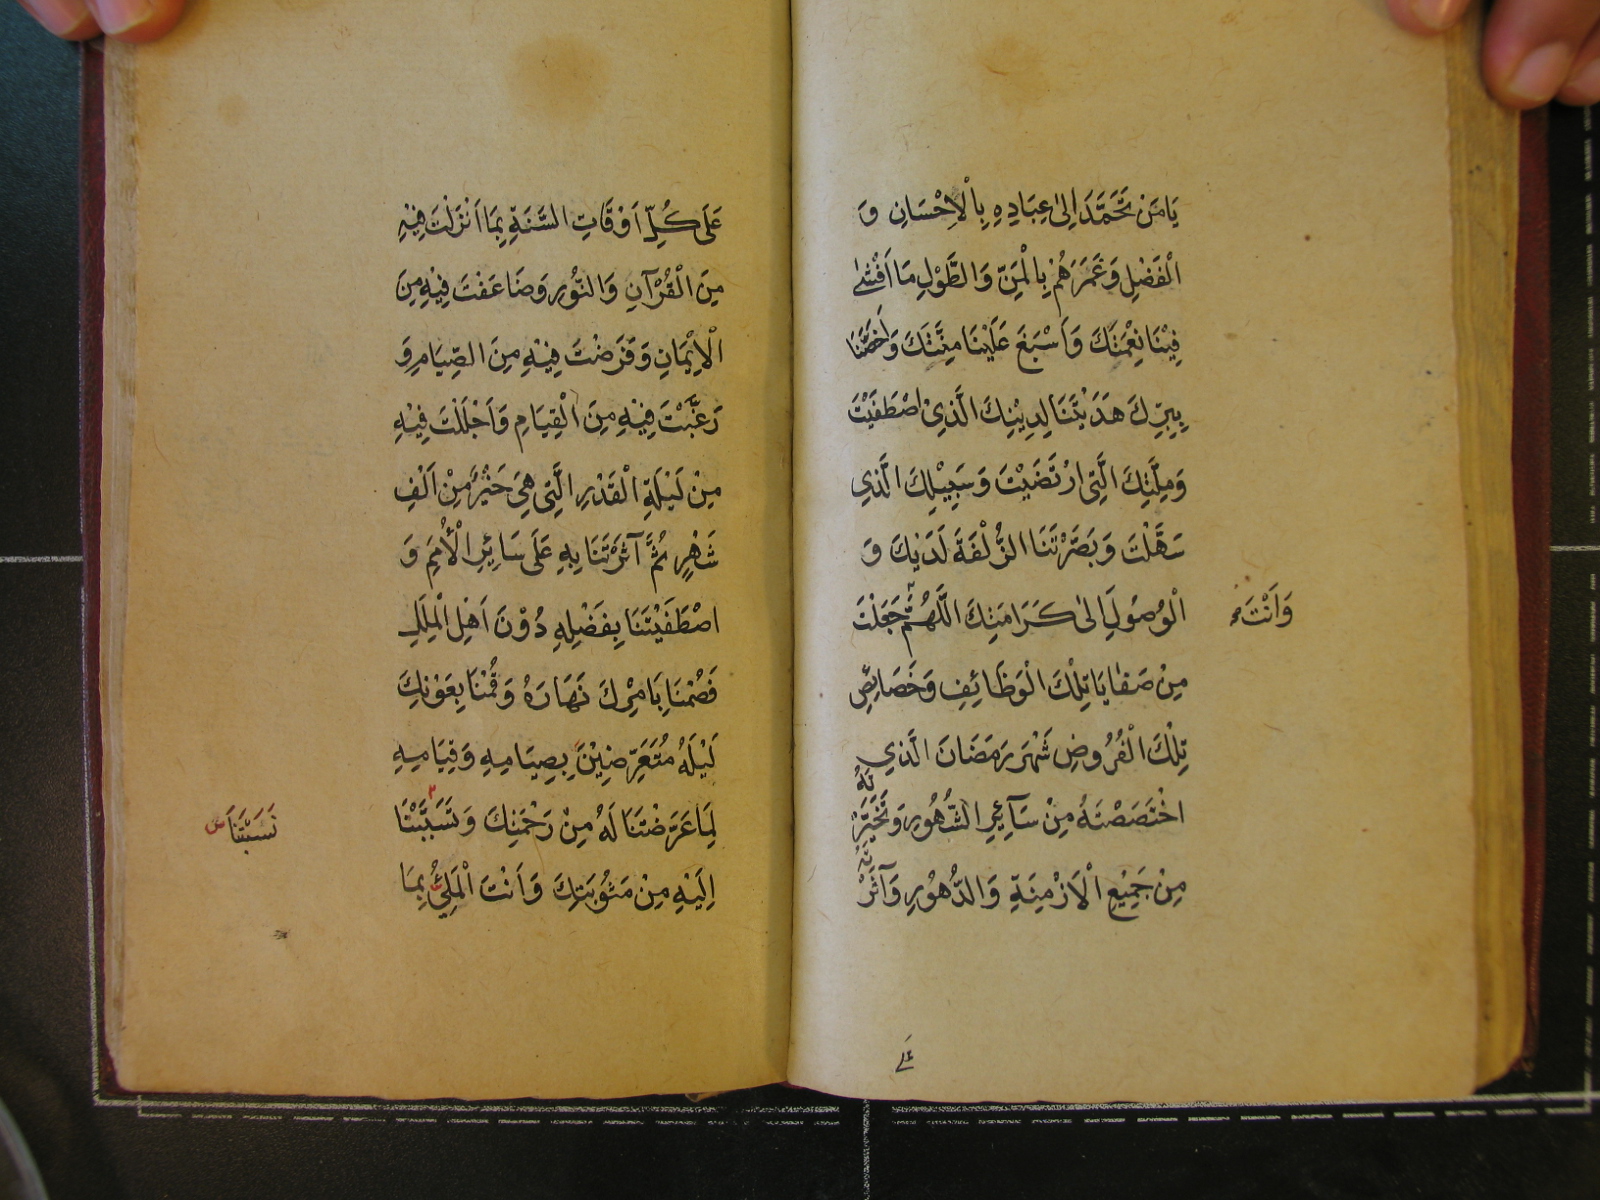 يَا مَنْ تَحَمَّدَ اِلىٰ عِبَادِهِ بِالْاِحْسَانِ وَ
الْفَضْلِ وَغَمَرَهُمْ بِالْمَنِّ وَالطَّوْلِ مَا اَفْشٰى
فِيْنَا نِعْمَتَكَ وَاَسْبَغَ عَلَيْنَا مِنَّتَكَ وَاَخَصَّنَا
بِبِرِّكَ هَدَيْتَنَا لِدِيْنِكَ الَّذِيْ اصْطَفَيْتَ
وَمِلَّتِكَ الَّتِى ارْتَضَيْتَ وَسَبِيْلِكَ الَّذِي
سَهَّلْتَ وَبَصَّرْتَنَا الزُّلْفَةَ لَدَيْكَ وَ
الْوُصُوْلَ اِلىٰ كَرَامَتِكَ اَللّٰهُمَّ جَعَلْتَ
وَاَنْتَ
مِنْ صَفَايَا تِلْكَ الْوَظَائِفِ وَخَصَائِصِ
تِلْكَ الْفُرُوضِ شَهْرَ رَمَضَانَ الَّذِي
اخْتَصَصْتَهُ مِنْ سَآئِرِ الشُّهُوْرِ وَتَخَيَّرْتَهُ
مِنْ جَمِيْعِ الْاَزْمِنَةِ وَالدُّهُوْرِ وَآثَرْتَهُ
عَلٰى
عَلَى كُلِّ اَوْقَاتِ السَّنَةِ بِمَا اَنْزَلْتَ فِيْهِ
مِنَ الْقُرْآنِ وَالنُّوْرِ وَضَاعَفْتَ فِيْهِ مِنَ
الْاِيْمَانِ وَفَرَضْتَ فِيْهِ مِنَ الصِّيَامِ وَ
رَغَّبْتَ فِيْهِ مِنَ الْقِيَامِ وَاَجْلَلْتَ فِيْهِ
مِنْ لَيْلَةِ الْقَدْرِ الَّتِى هِيَ خَيْرٌ مِنْ اَلْفِ
شَهْرٍ ثُمَّ آثَرْتَنَا بِهِ عَلَى سَائِرِ الْاُمَمِ وَ
اصْطَفَيْتَنَا بِفَضْلِهِ دُوْنَ اَهْلِ الْمِلَلِ
فَصُمْنَا بِاَمْرِكَ نَهَارَهُ وَقُمْنَا بِعَوْنِكَ
لَيْلَهُ مُتَعَرِّضِيْنَ بِصِيَامِهِ وَقِيَامِهِ
لِمَا عَرَضْتَنَا لَهُ مِنْ رَحْمَتِكَ وَتَسَبَّبْنَا
نَسَبْتَنَا س
اِلَيْهِ مِنْ مَثُوْبَتِكَ وَاَنْتَ الْمَلِيُّ بِمَا